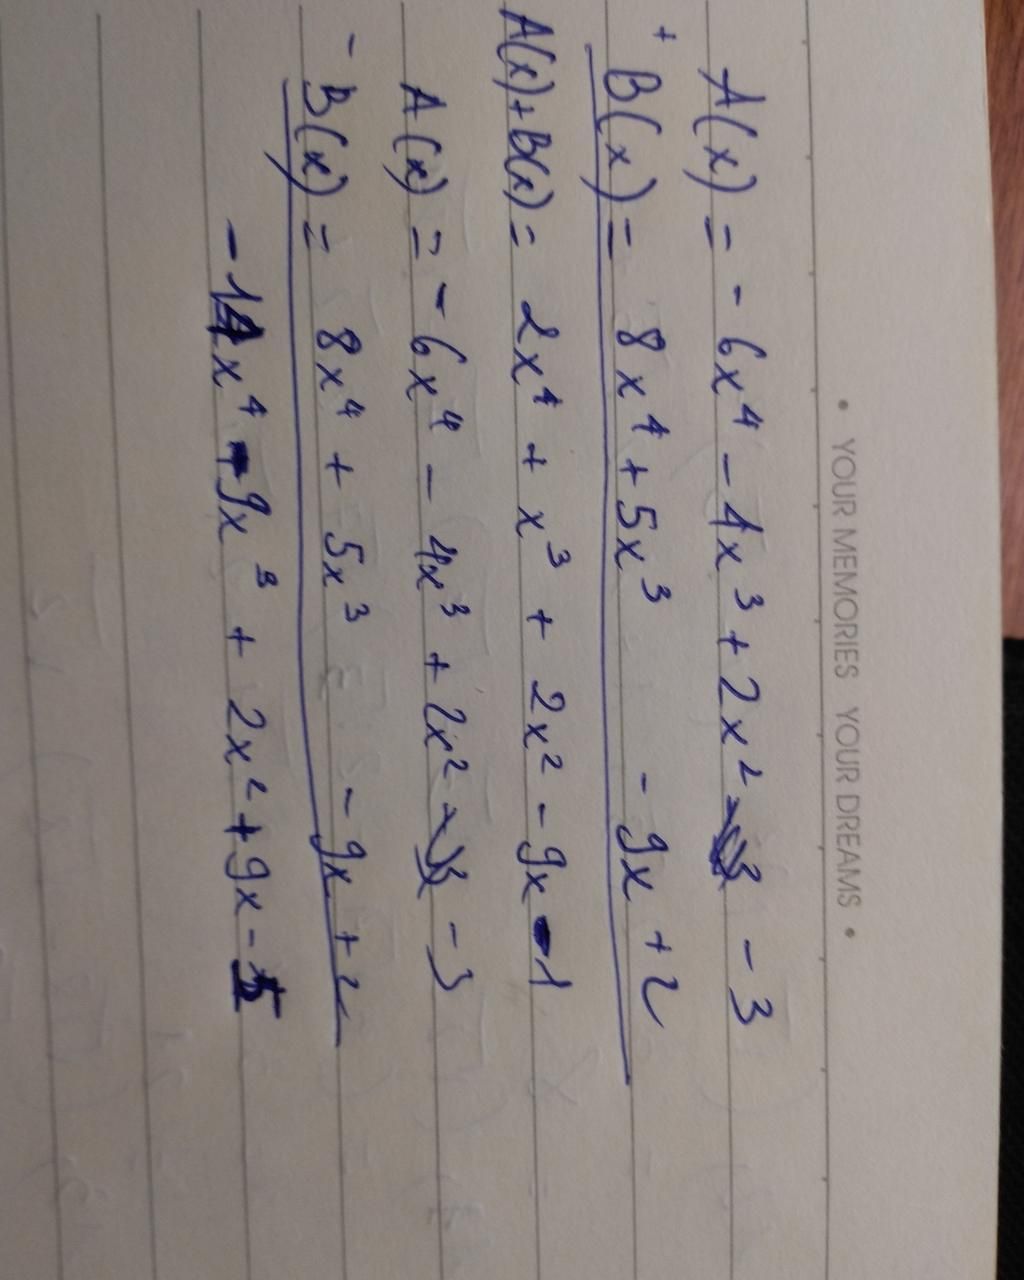 • YOUR MEMORIES YOUR DREAMS •
A(x) = - 6x⁴ - 4x³ + 2x² - 3
+
B(x) = 8x⁴ + 5x³ - 9x + 2
A(x) + B(x) = 2x⁴ + x³ + 2x² - 9x - 1
A(x) = - 6x⁴ - 4x³ + 2x² - 3
-
B(x) = 8x⁴ + 5x³ - 9x + 2
- 14x⁴ - 9x³ + 2x² + 9x - 5